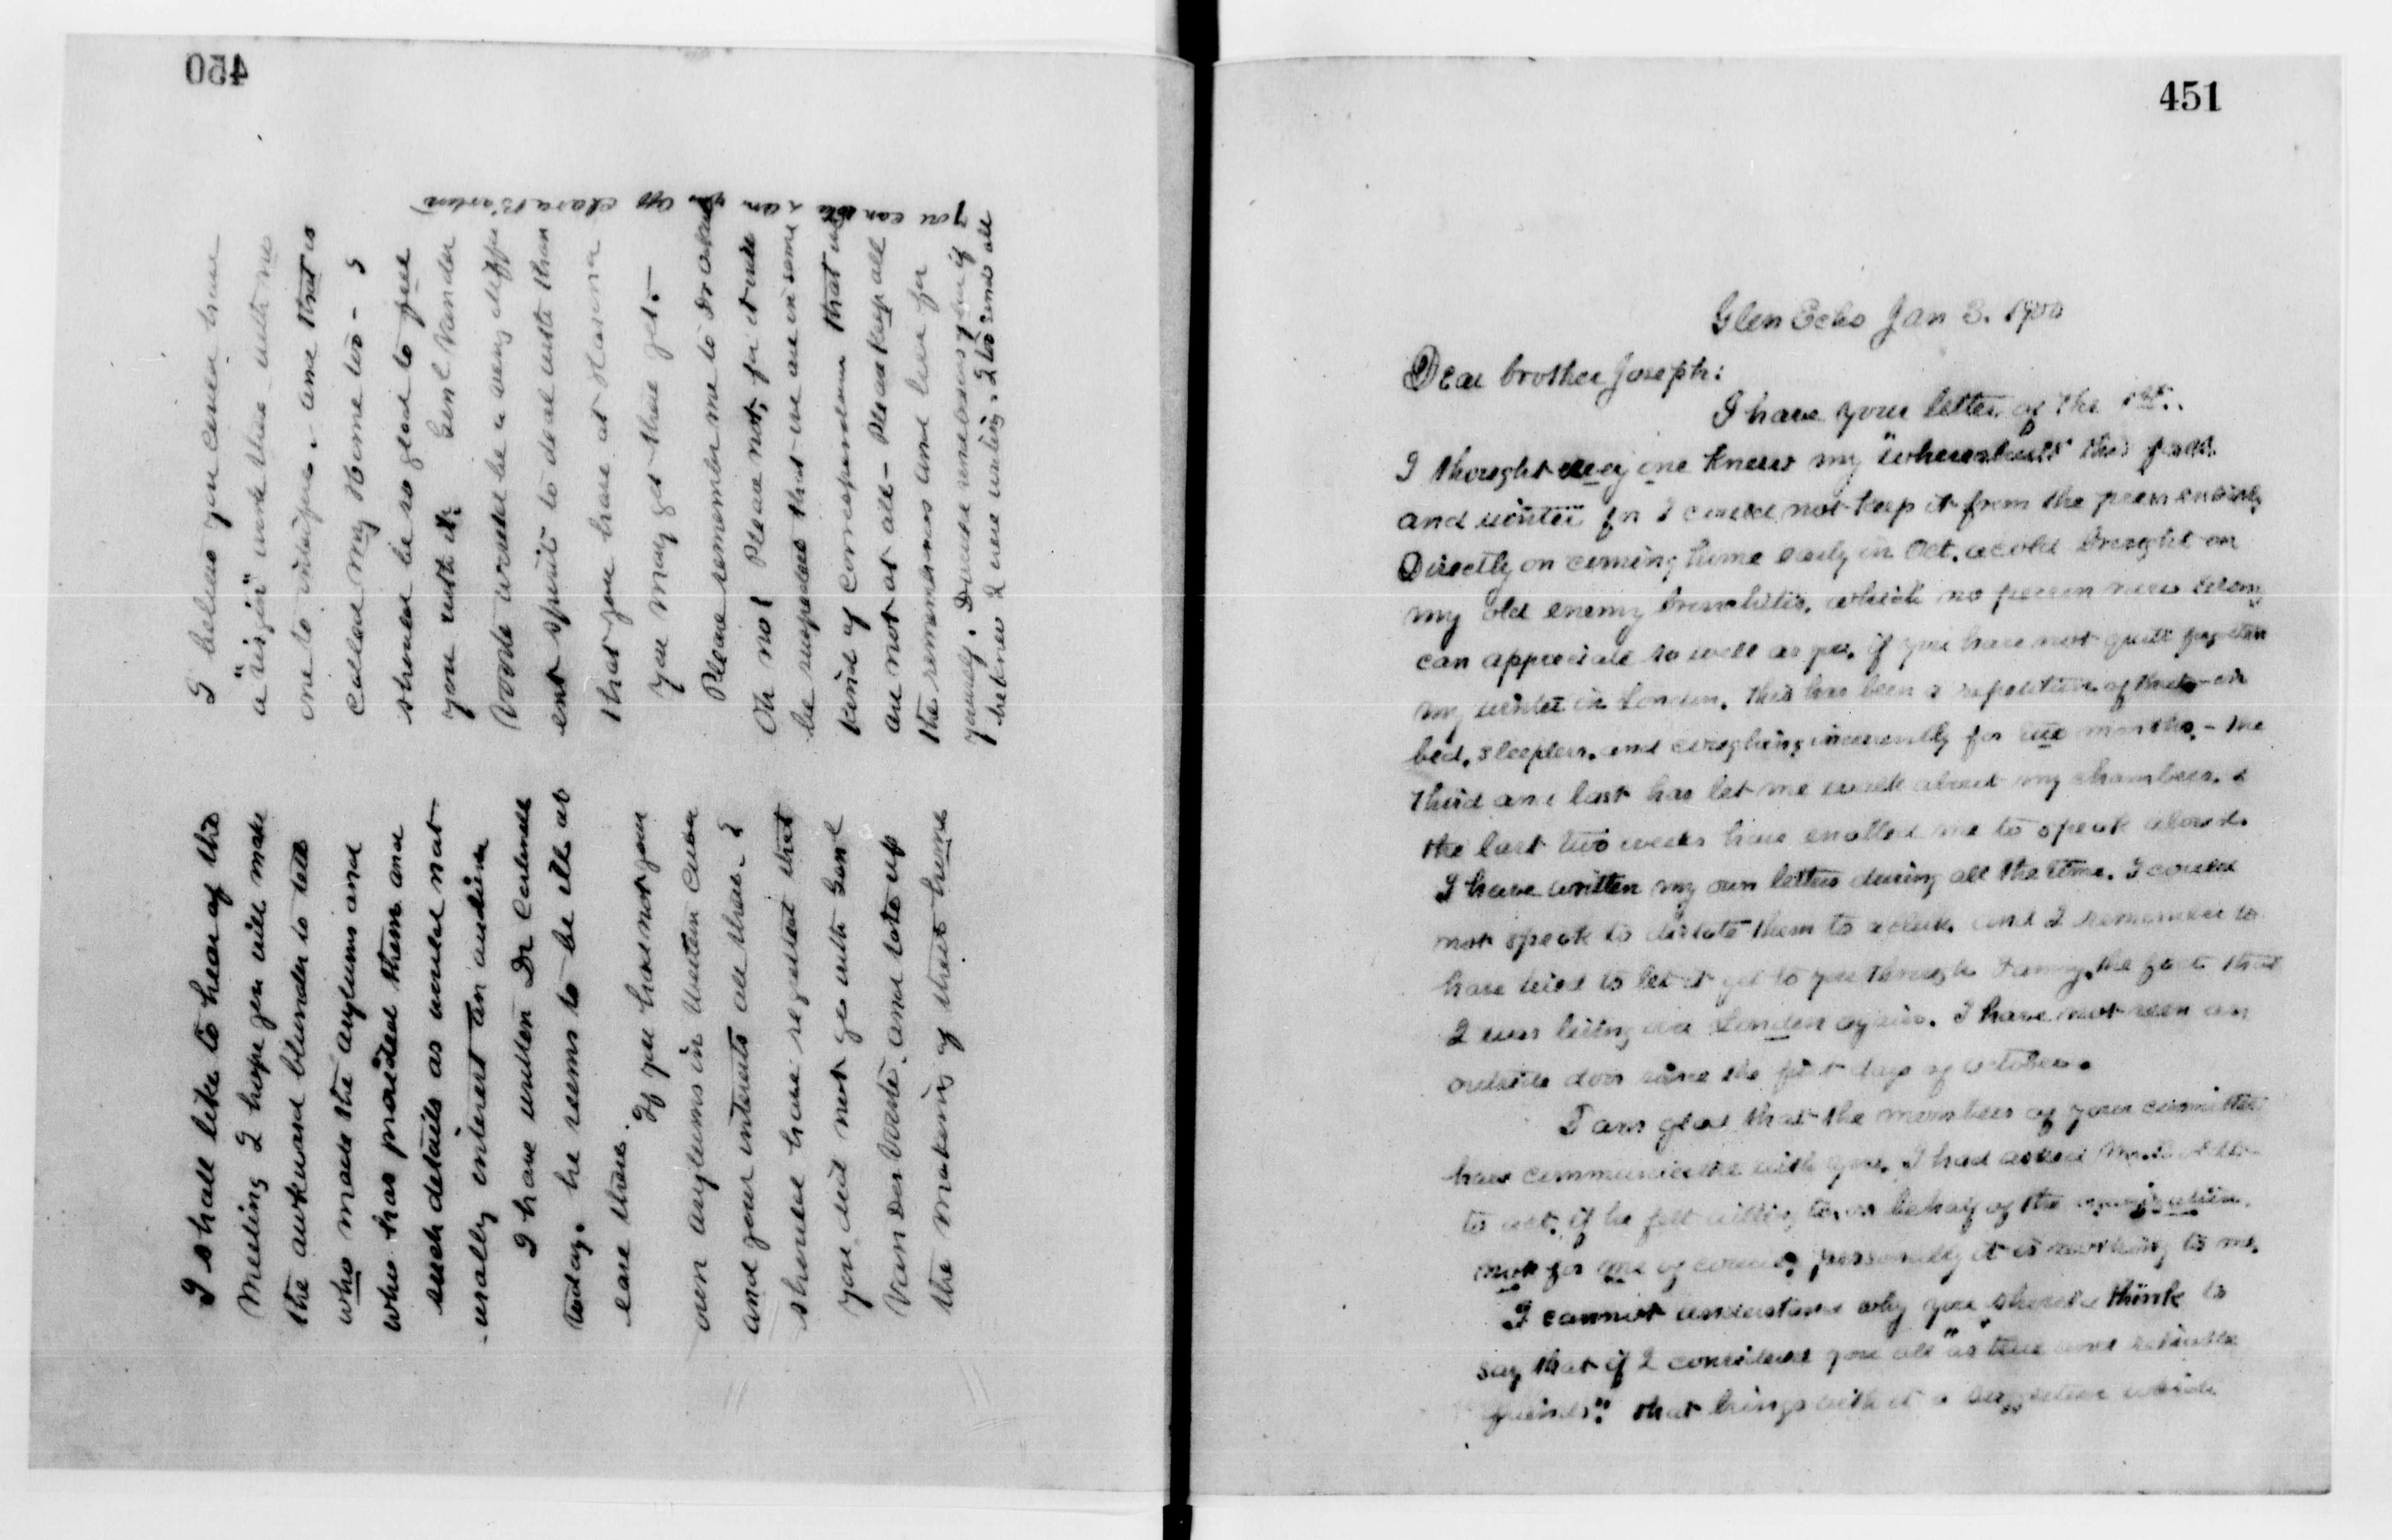 450
I shall like to hear of this
Meeting I hope you will make
the awkward blunder to tell
who made the asylums and
who has provided them and
such details as would nat-
urally interest an audience
I have written Dr Cardwell
today. he seems to be ill at
ease there.
If you have not your
own asylums in Western Cuba
and your interests all there - ?
should have regretted that
you did not go with Genl
Van der Voort. and tote up
the making of their home
I believe you could have
a "risin" with those with no
one to interfere. - and that is
called my Home too - I
should be so glad to feel
you with it. Genl Vander
Voort would be a very differ
ent spirit to deal with than
that you have at Havana
you may get there yet. -
Please remember me to Dr
Oh no! Please not, for it will
be suspected that we are in some
kind of correspondence that we
are not at all - Please keep all
the remembrances and love for
yourself.
between I were writing. I to send all
you can I am off Clara Barton
451
Glen Echo Jan 3. 1900
Dear brother Joseph:
I have your letter of the 1st.
I thought every one knew my "whereabouts" this fall
and winter for I could not keep it from the press entirely
Directly on coming home early in Oct. a cold brought on
my old enemy bronchitis, which no person now living
can appreciate so well as you, if you have not quite forgotten
my winter in London. This has been a repetition of that - in
bed, sleepless, and coughing incessantly for two months, - the
third and last has let me walk about my chambers, &
the last two weeks have enabled me to speak aloud.
I have written my own letters during all the time. I could
not speak to dictate them to a clerk, and I remember to
have tried to let it get to you through Fanny, the fact that
I was living over London again. I have not seen an
outside door since the first days of October.
I am glad that the members of your committee
have communicated with you. I had asked Mr.
to act, if he felt willing to, on behalf of the organization.
not for me of course, personally it is nothing to me.
I cannot understand why you should think to
say that if I considered you all "as true and reliable
friends": that brings with it a suggestion which